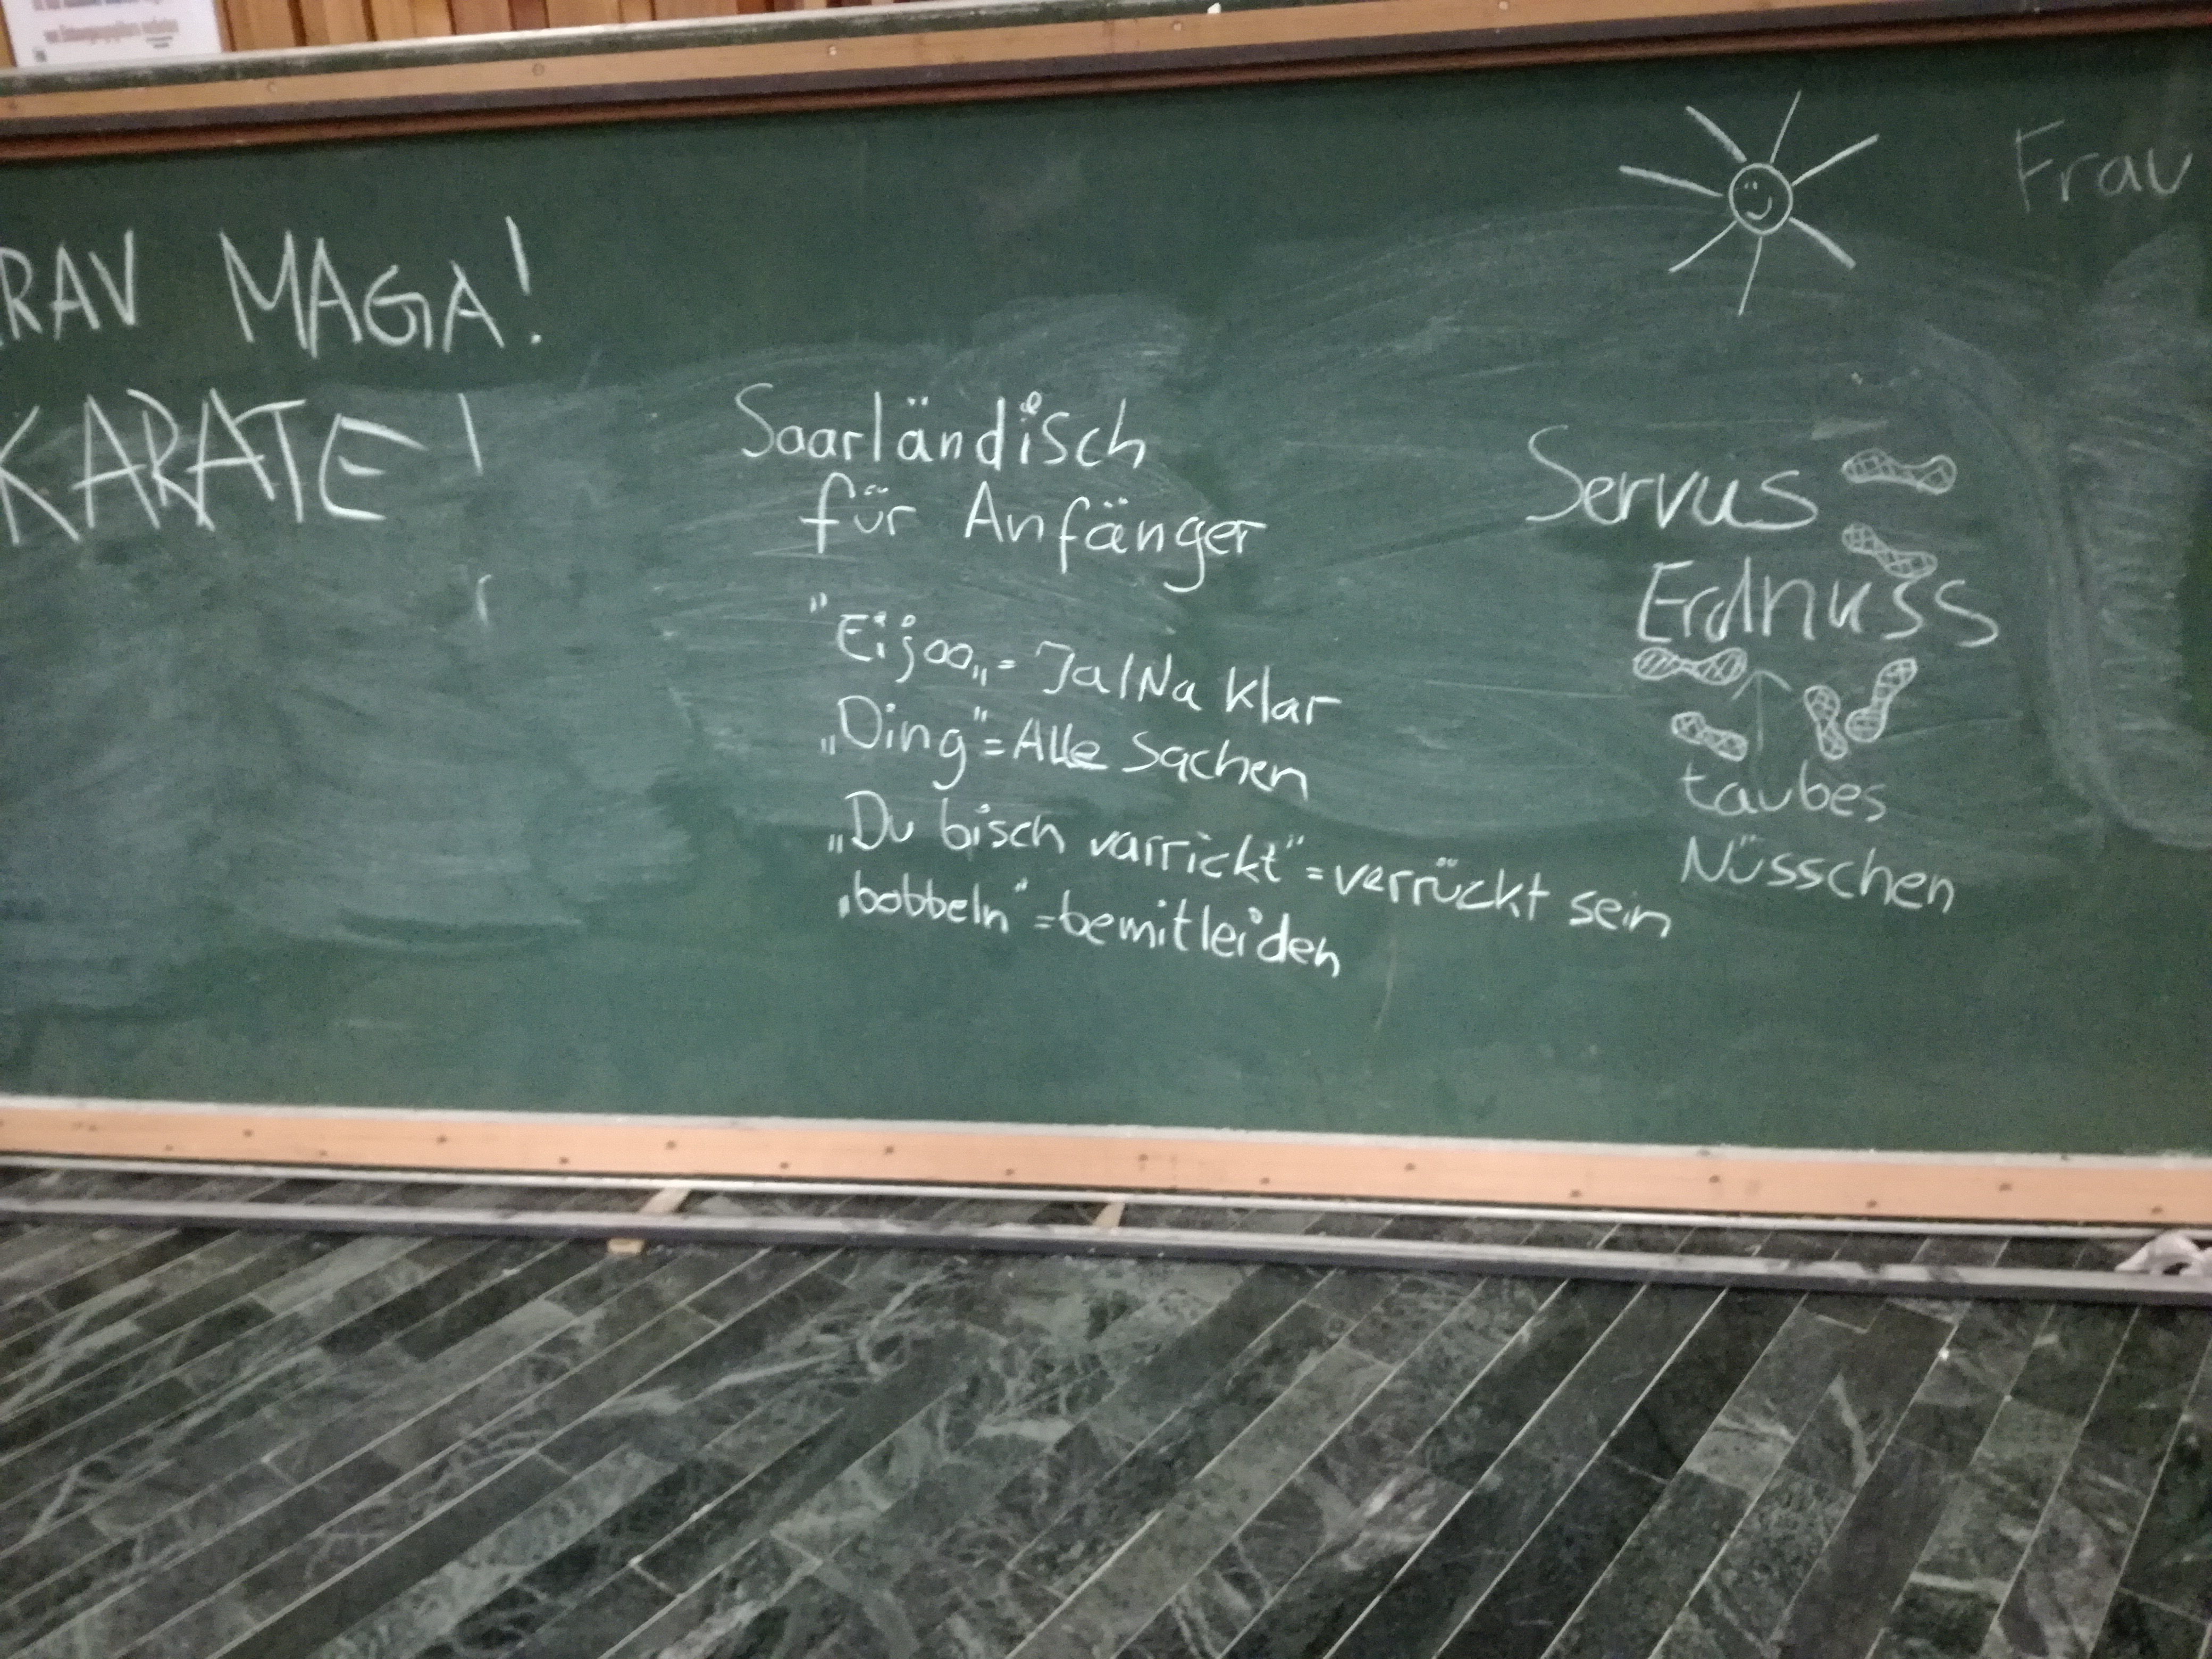 RAV MAGA!
KARATE!
Saarländisch
für Anfänger
"Eijoo„ = Ja/Na klar
„Ding" = Alle Sachen
„Du bisch varrickt" = verrückt sein
„bobbeln" = bemitleiden
Frau
Servus
Erdnuss
taubes
Nüsschen